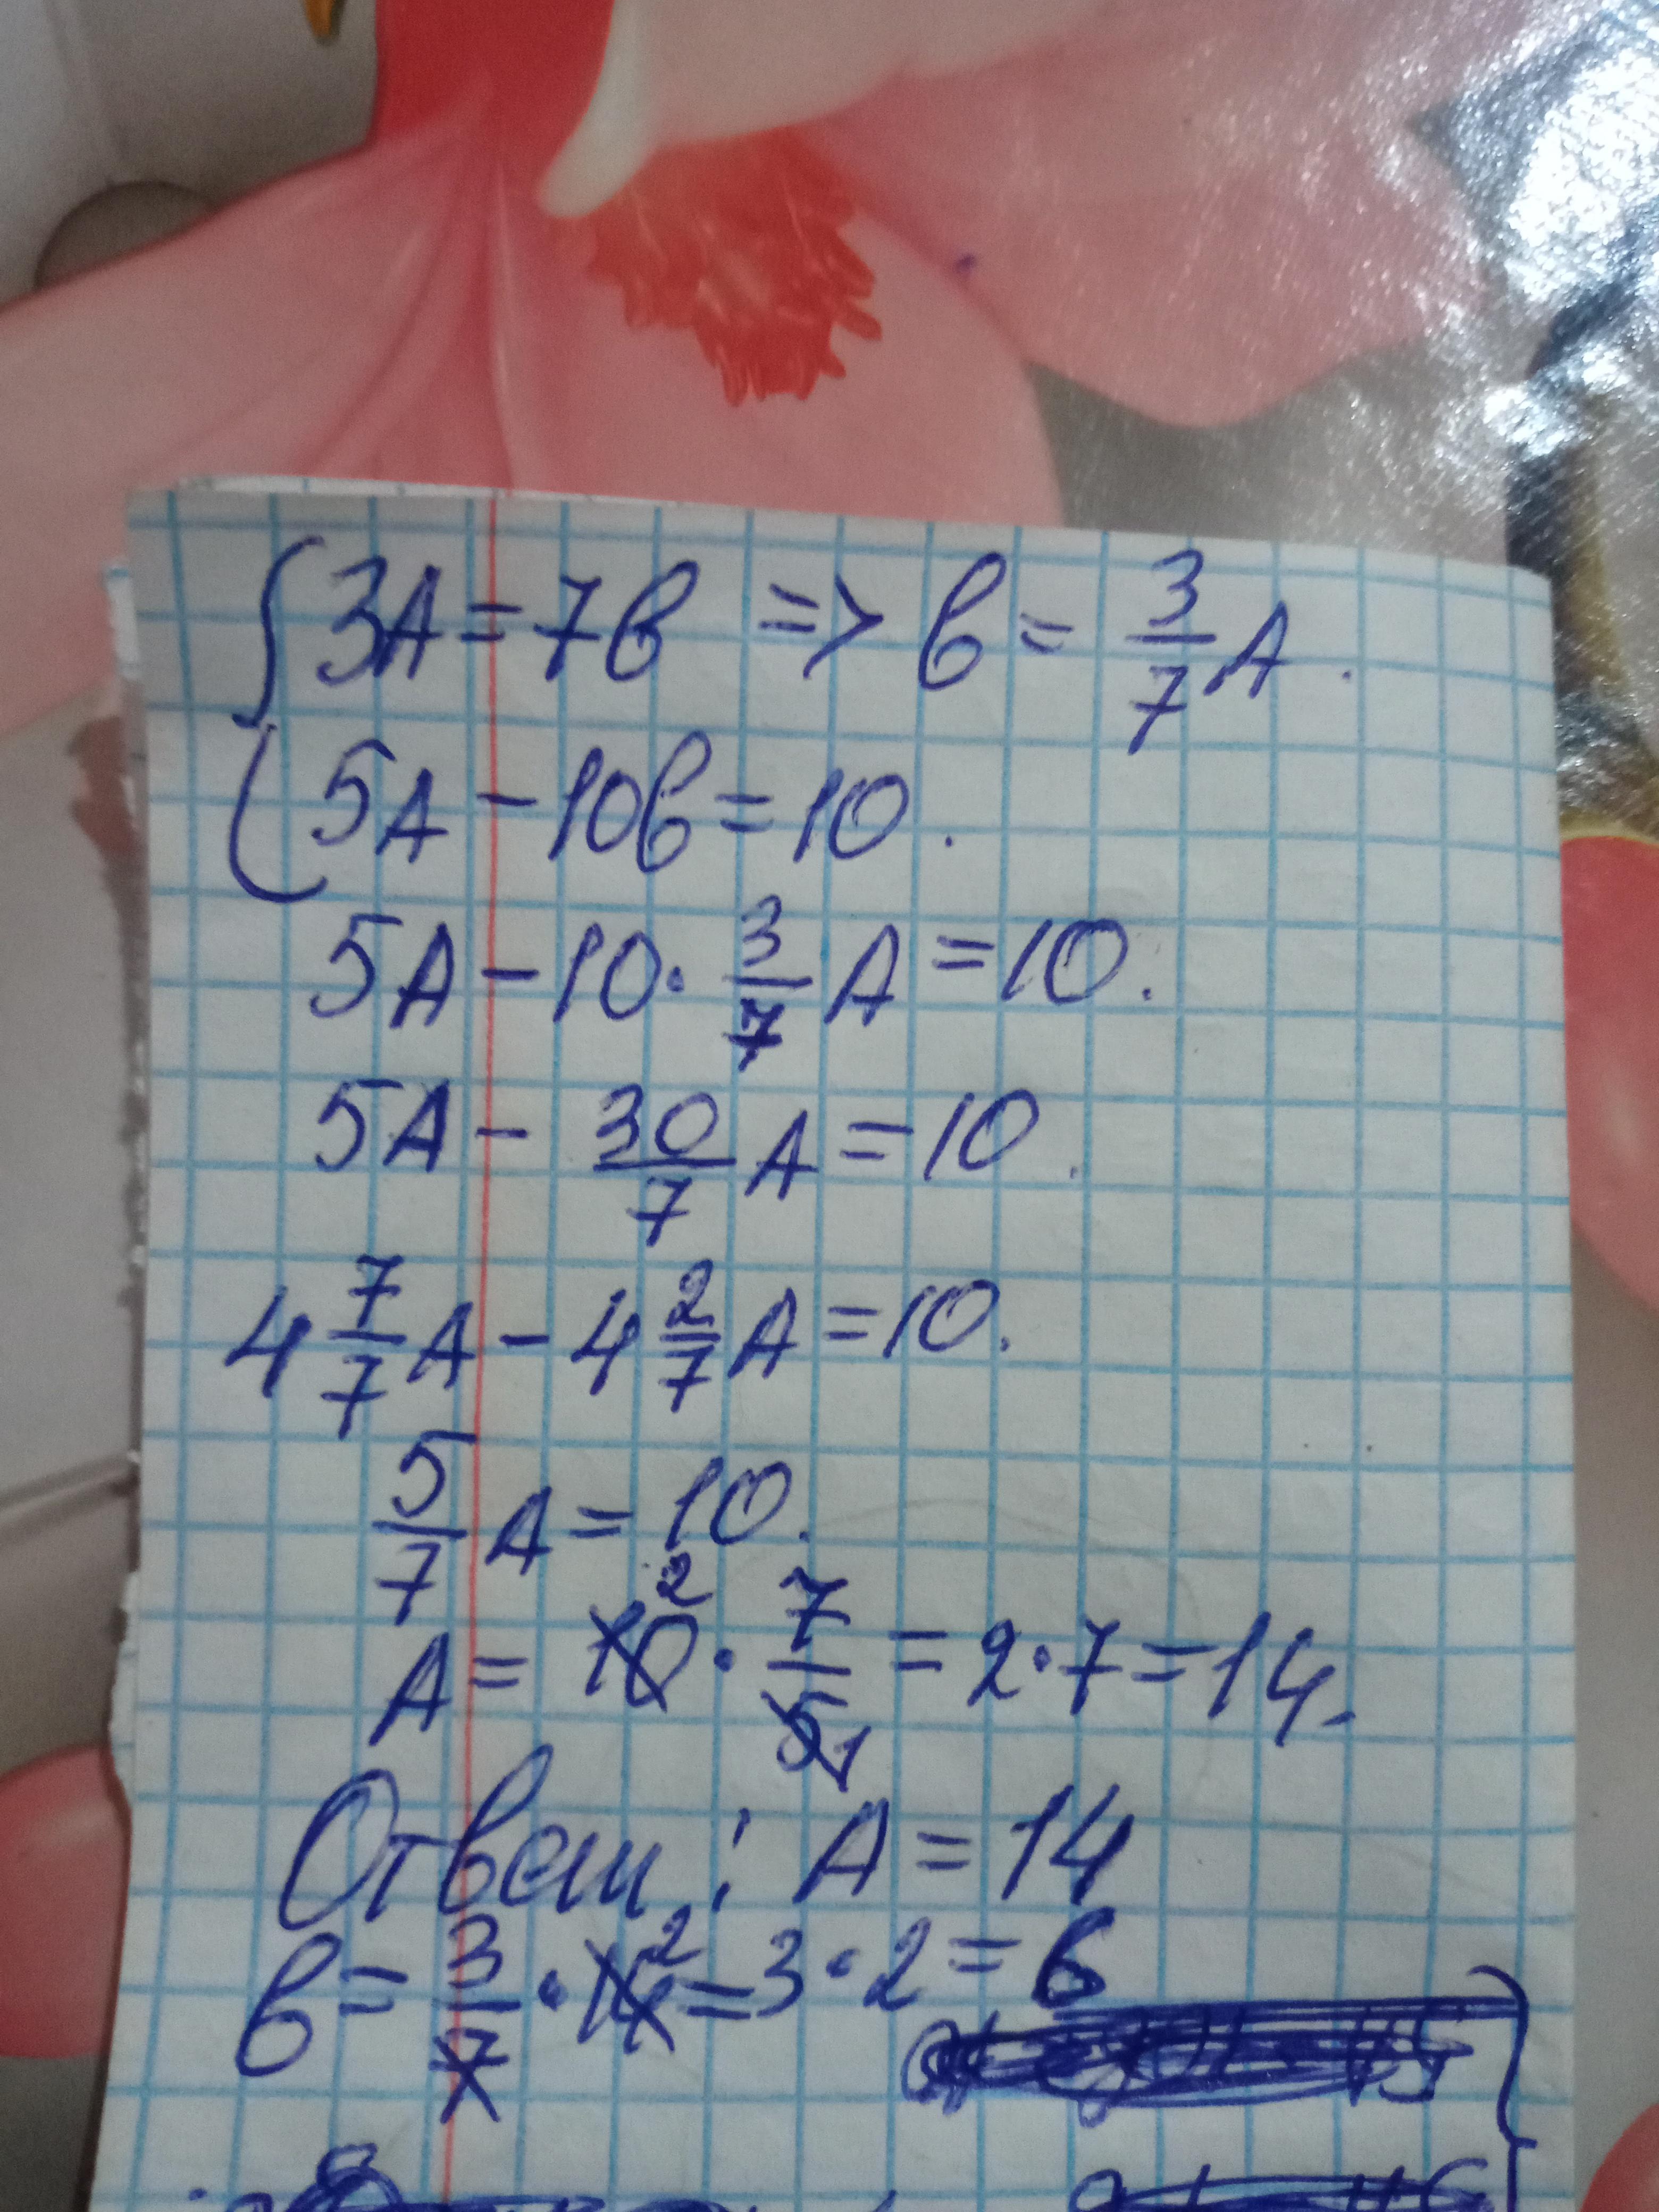 {3A = 7в => в = 3/7 A.
5A - 10в = 10.
5A - 10 · 3/7 A = 10.
5A - 30/7 A = 10.
4 7/7 A - 4 2/7 A = 10.
5/7 A = 10.
A = 10² · 7/5₁ = 2·7 = 14.
Ответ: A = 14
в = 3/7 · 14² = 3·2 = 6